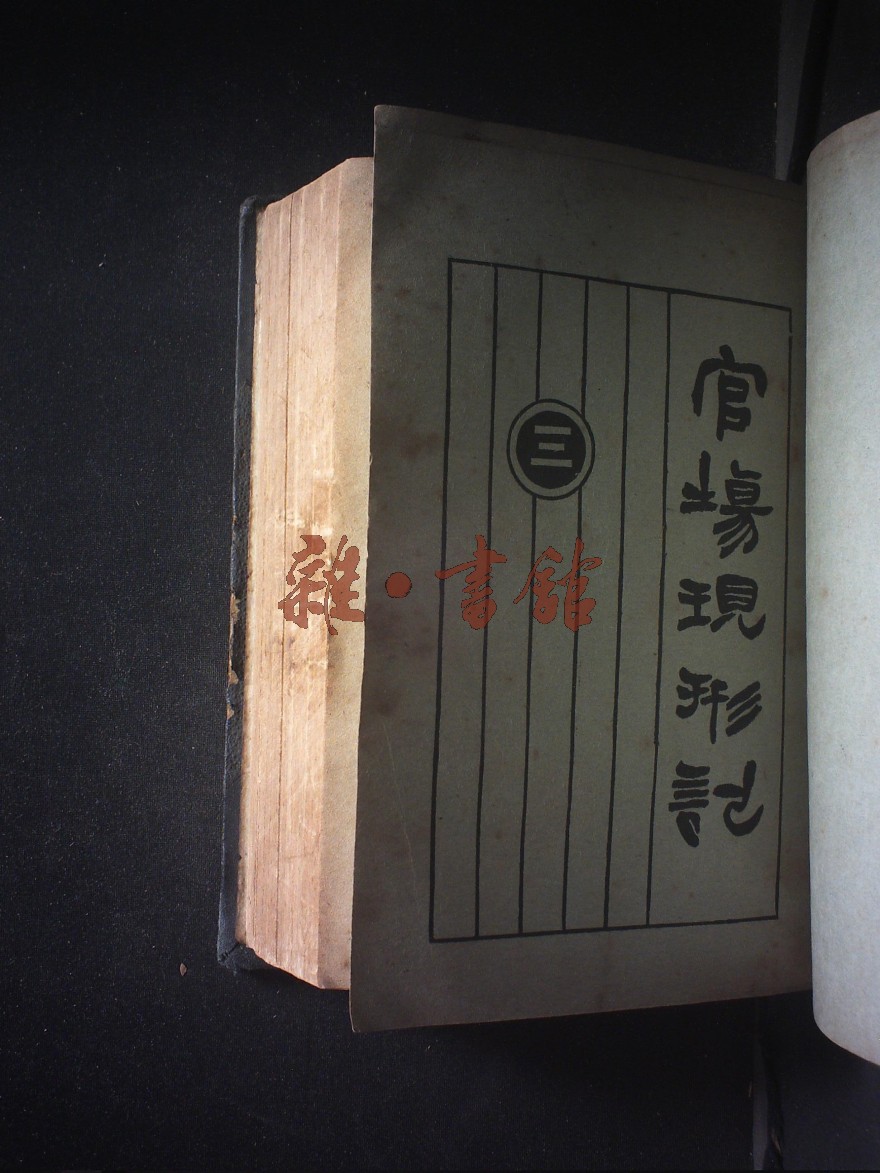 官場現形記
三
雜·書館